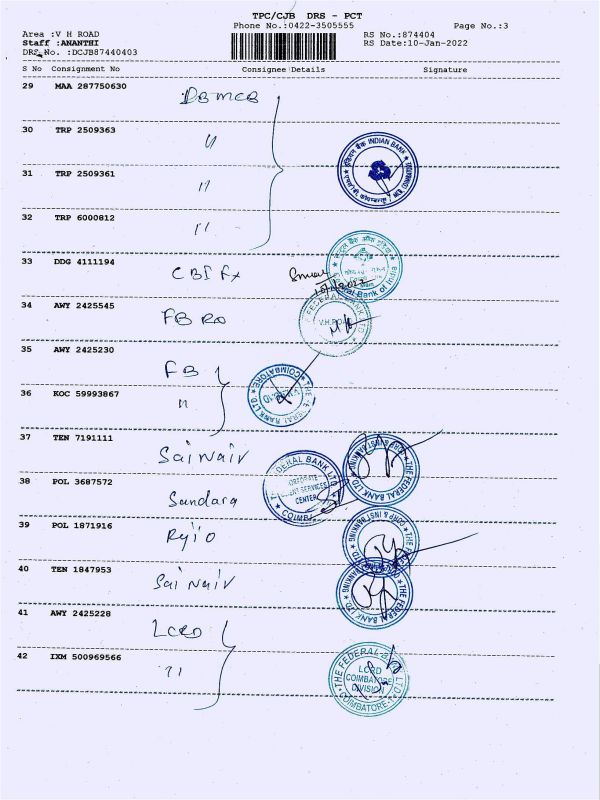 TPC/CJB DRS - PCT
Phone No.:0422-3505555 Page No.:3
Area :V H ROAD RS No.:874404
Staff :ANANTHI RS Date:10-Jan-2022
DRS No. :DCJB87440403
S No Consignment No Consignee Details Signature
29 MAA 287750630 DBMCB
30 TRP 2509363 "
INDIAN BANK
31 TRP 2509361 "
32 TRP 6000812 "
33 DDG 4111194 CBI Fx
सेंट्रल बैंक ऑफ इंडिया
Bank of India
34 AWY 2425545 FB RO
FEDERAL BANK LTD
V.H.ROAD
35 AWY 2425230 FB
36 KOC 59993867 "
THE FEDERAL BANK LTD. COIMBATORE
37 TEN 7191111 Sai Naiv
THE FEDERAL BANK LTD. CORP & INST BANKING
FEDERAL BANK LTD
CORPORATE
CLIENT SERVICES
CENTER
38 POL 3687572 Sundara
39 POL 1871916 Rejio
THE FEDERAL BANK LTD. CORP & INST BANKING
40 TEN 1847953 Sai Naiv
THE FEDERAL BANK LTD.
41 AWY 2425228 LCRD
42 IXM 500969566 "
THE FEDERAL BANK LTD.
LCRD
COIMBATORE
DIVISION
COIMBATORE